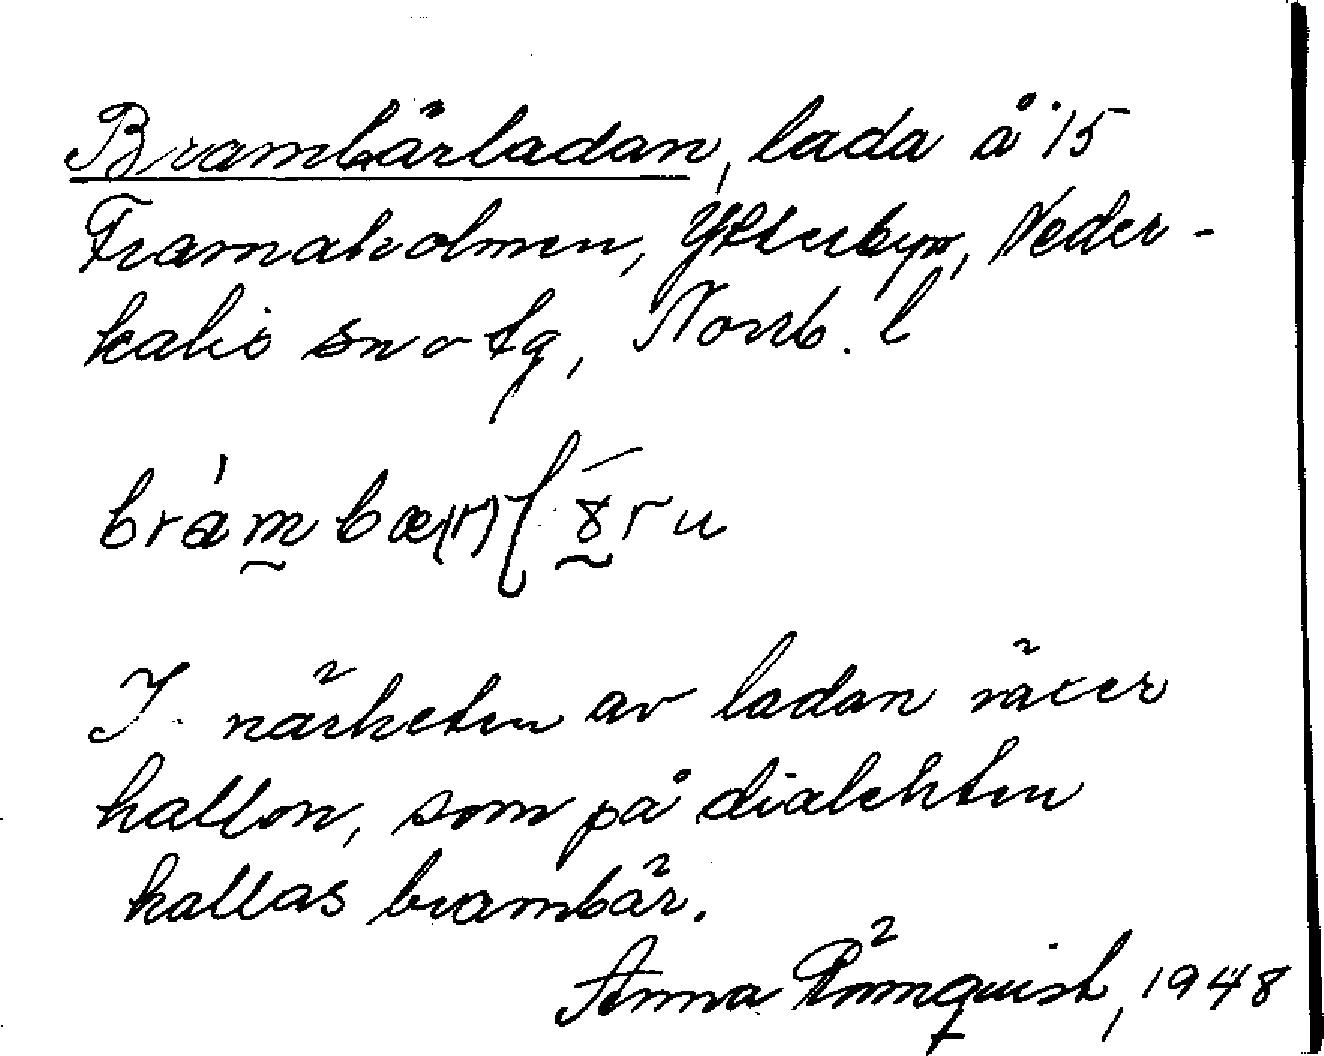 Brambärladan, lada å 15
Framaholmen, Ytterbyn, Neder-
kalix sn o tg, Norrb. l
I närheten av ladan växer
hallon, som på dialekten
kallas brambär.
Anna Römquist, 1948